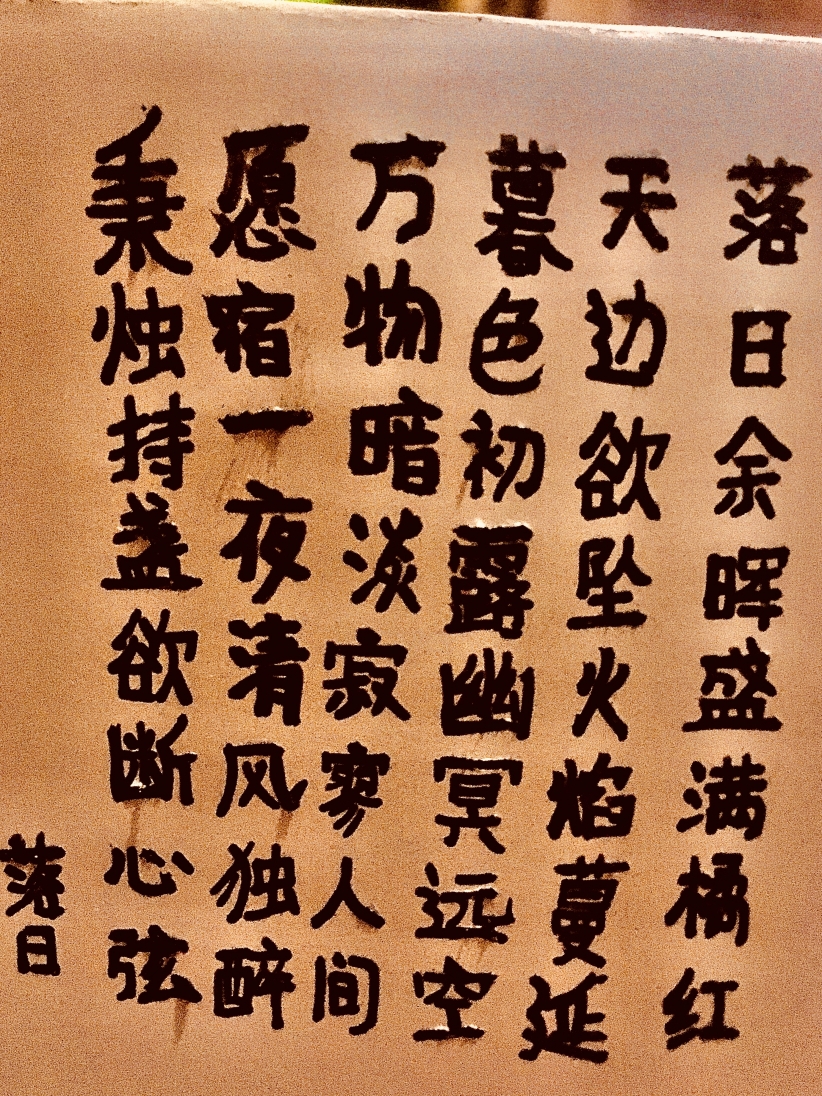 落日余晖盛满橘红
天边欲坠火焰蔓延
暮色初露幽冥远空
万物暗淡寂寥人间
愿宿一夜清风独醉
秉烛持盏欲断心弦
落日